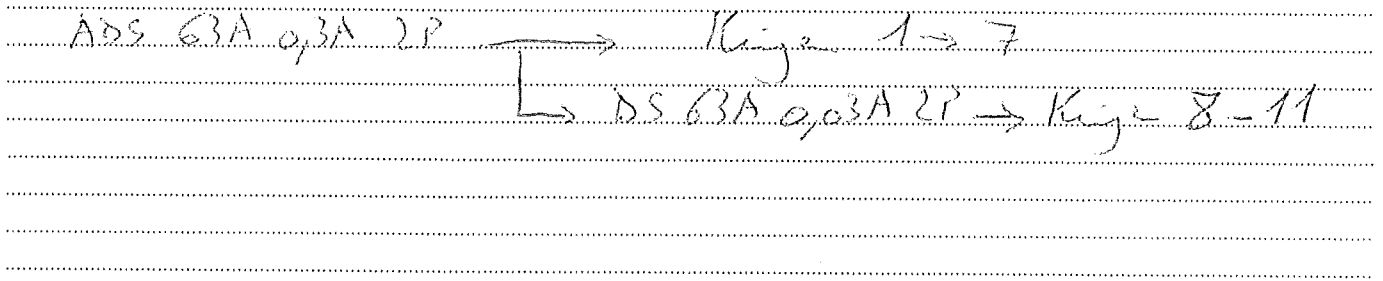 ADS 63A 0,3A 2P → Kringen 1 → 7
↳ DS 63A 0,03A 2P → Kringen 8 - 11